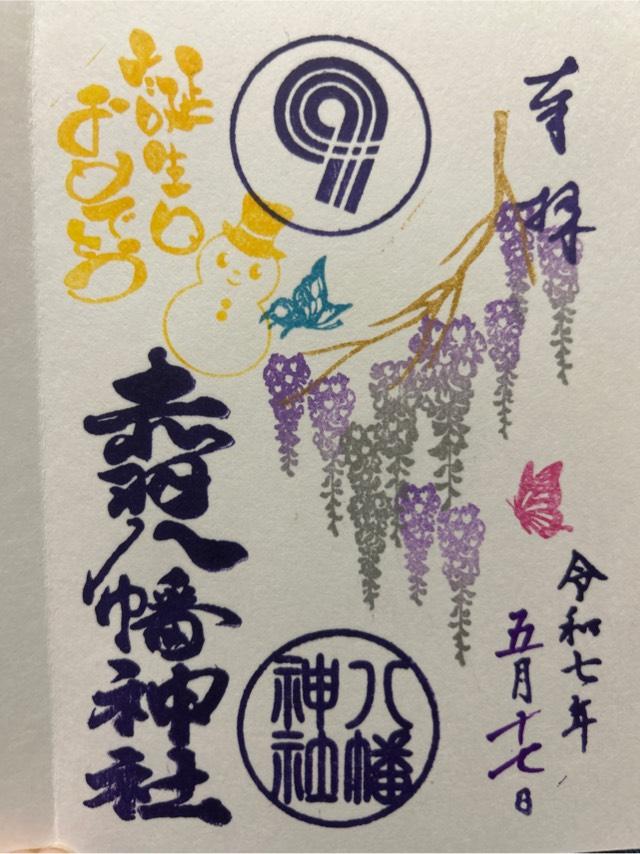 奉拝
令和七年
五月十七日
お誕生日
おめでとう
赤羽八幡神社
八幡
神社